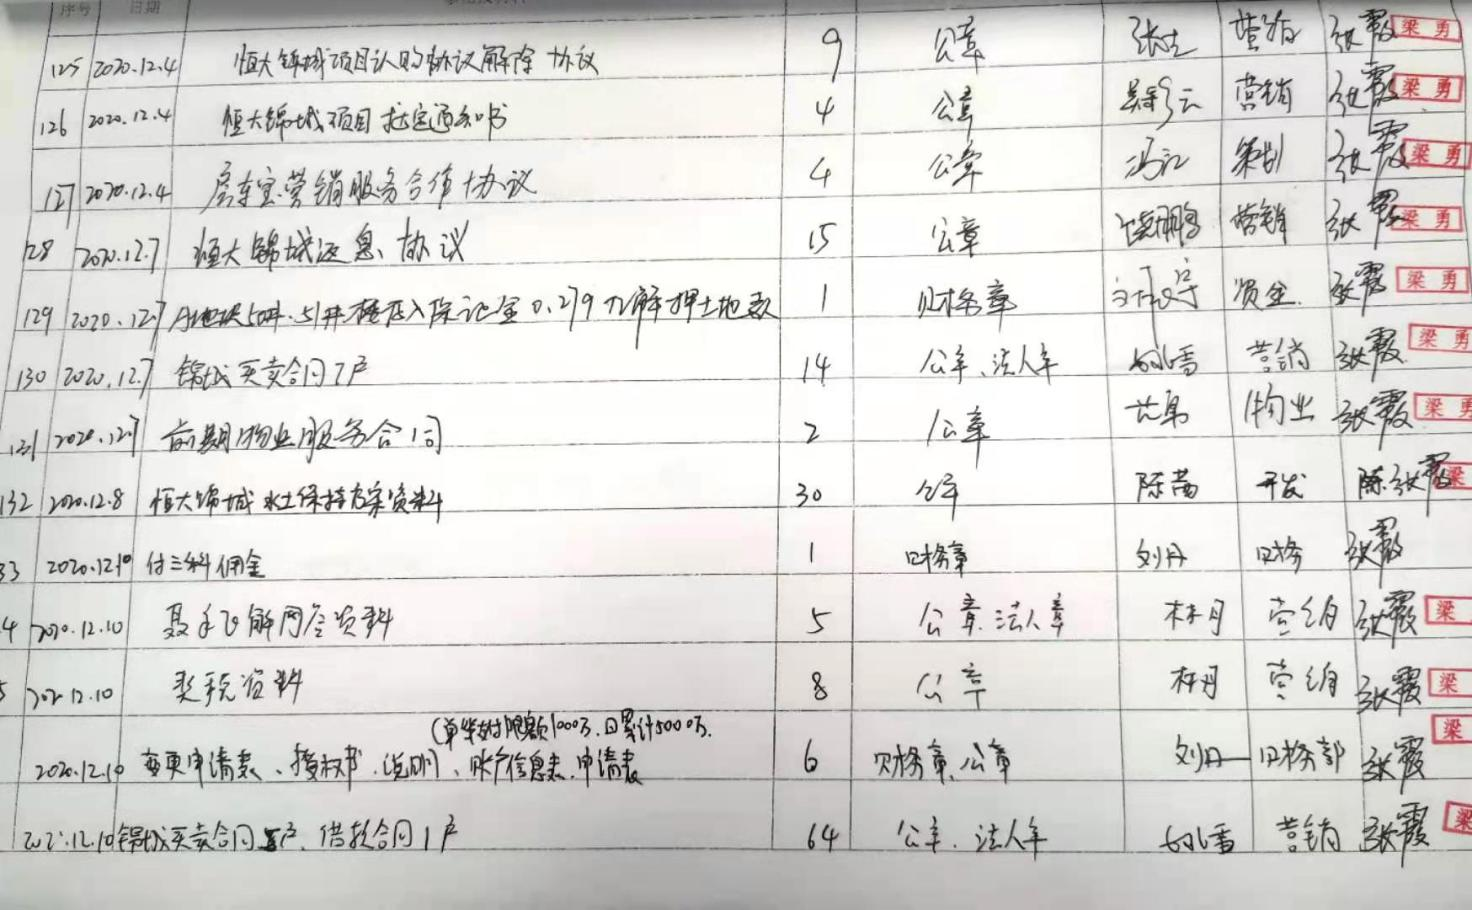 序号 日期
125 2020.12.4 恒大锦城项目认购协议解除协议 9 公章 营销 张霞 梁勇
126 2020.12.4 恒大锦城项目挞定通知书 4 公章 营销 张霞 梁勇
127 2020.12.4 房车宝营销服务合作协议 4 公章 冯江 策划 张霞 梁勇
128 2020.12.7 恒大锦城返息协议 15 公章 营销 张霞 梁勇
129 2020.12.7 1 财务章 资金 张霞 梁勇
130 2020.12.7 锦城买卖合同7户 14 公章、法人章 营销 张霞 梁勇
131 2020.12.7 前期物业服务合同 2 公章 物业 张霞 梁勇
132 2020.12.8 恒大锦城水土保持方案资料 30 公章 陈茜 开发 陈 张霞 梁
33 2020.12.10 付三科佣金 1 财务章 刘丹 财务 张霞
4 2020.12.10 解网签资料 5 公章、法人章 林丹 营销 张霞 梁
5 2020.12.10 契税资料 8 公章 林丹 营销 张霞 梁
(单笔支付限额1000万,日累计5000万.
2020.12.10 变更申请表、授权书、说明、账户信息表、申请表 6 财务章、公章 刘丹 财务部 张霞 梁
2020.12.10 锦城买卖合同 户、借款合同1户 64 公章、法人章 营销 张霞 梁